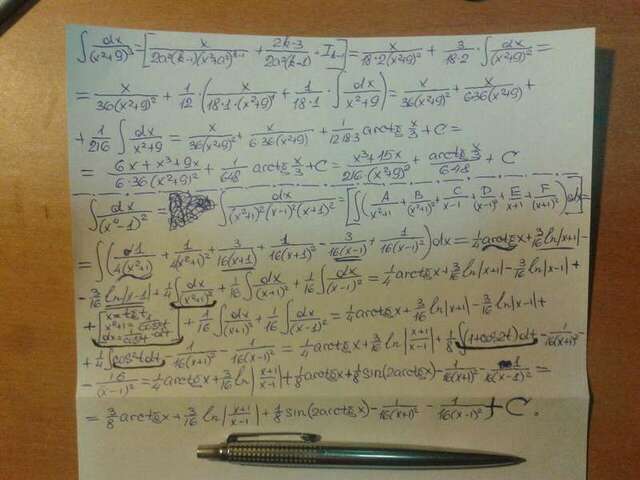 ∫ dx/(x²+9)³ = [x/(2a²(k-1)(x²+a²)^(k-1)) + (2k-3)/(2a²(k-1)) · I_(k-1)] = x/(18·2(x²+9)²) + 3/(18·2) · ∫ dx/(x²+9)² =
= x/(36(x²+9)²) + 1/12 · (x/(18·1·(x²+9)) + 1/(18·1) · ∫ dx/(x²+9)) = x/(36(x²+9)²) + x/(6·36(x²+9)) +
+ 1/216 ∫ dx/(x²+9) = x/(36(x²+9)²) + x/(6·36(x²+9)) + 1/(12·18·3) arctg x/3 + C =
= (6x+x³+9x)/(6·36(x²+9)²) + 1/648 arctg x/3 + C = (x³+15x)/(216(x²+9)²) + (arctg x/3)/648 + C
∫ dx/(x⁴-1)² = ∫ dx/((x²+1)²(x-1)²(x+1)²) = [∫(A/(x²+1) + B/(x²+1)² + C/(x-1) + D/(x-1)² + E/(x+1) + F/(x+1)²)dx] =
= ∫(1/(4(x²+1)) + 1/(4(x²+1)²) + 3/(16(x+1)) + 1/(16(x+1)²) - 3/(16(x-1)) + 1/(16(x-1)²))dx = 1/4 arctg x + 3/16 ln|x+1| -
- 3/16 ln|x-1| + 1/4 ∫ dx/(x²+1)² + 1/16 ∫ dx/(x+1)² + 1/16 ∫ dx/(x-1)² = 1/4 arctg x + 3/16 ln|x+1| - 3/16 ln|x-1| +
+ [x=tg t, x²+1=1/cos²t, dx=1/cos²t dt] + 1/16 ∫ dx/(x+1)² + 1/16 ∫ dx/(x-1)² = 1/4 arctg x + 3/16 ln|x+1| - 3/16 ln|x-1| +
+ 1/4 ∫cos²t dt - 1/(16(x+1)) - 1/(16(x-1)) = 1/4 arctg x + 3/16 ln|(x+1)/(x-1)| + 1/8 ∫(1+cos2t)dt - 1/(16(x+1)) -
- 16/(x-1) = 1/4 arctg x + 3/16 ln|(x+1)/(x-1)| + 1/8 arctg x + 1/8 sin(2arctg x) - 1/(16(x+1)) - 1/(16(x-1)) =
= 3/8 arctg x + 3/16 ln|(x+1)/(x-1)| + 1/8 sin(2arctg x) - 1/(16(x+1)) - 1/(16(x-1)) + C.